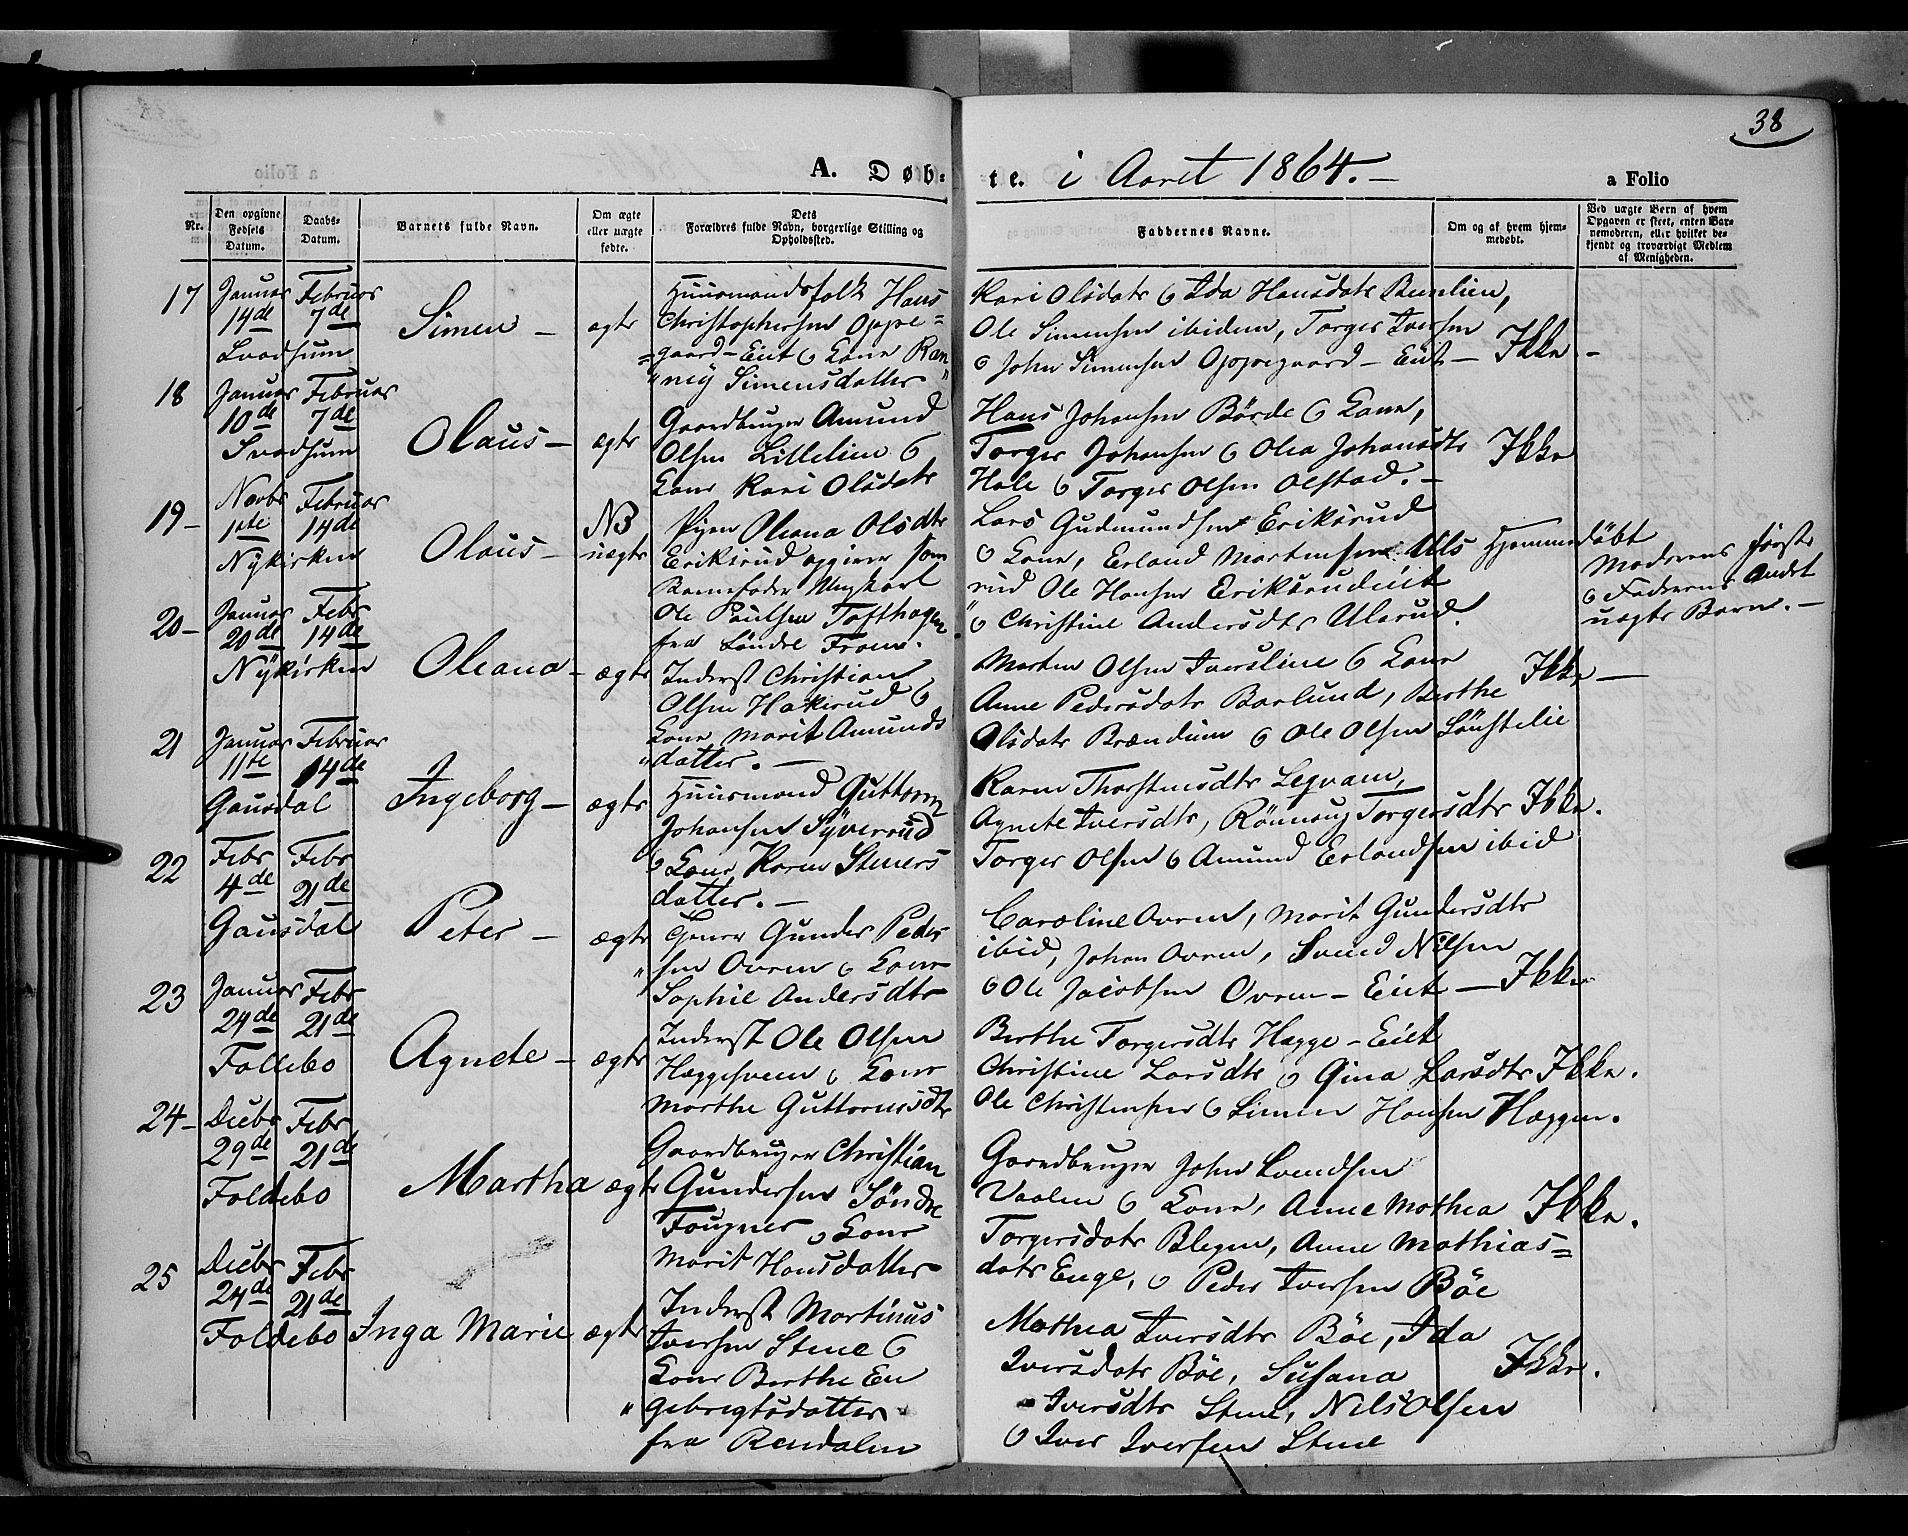 38
A. Døb-
te. i Aaret 1864.-
a Folio
Nr.
Den opgivne Fødsels Datum.
Daabs-Datum.
Barnets fulde Navn.
Om ægte eller uægte fødte.
Dets Forældres fulde Navn, borgerlige Stilling og Opholdsted.
Faddernes Navne.
Om og af hvem hjemmedøbt.
Ved uægte Børn af hvem Opgaven er skeet, enten Barnemoderen, eller hvilket bekjendt og troværdigt Medlem af Menigheden.
17
Januar 14de
Februar 7de
Svadsum
Simen -
ægte
Huusmandsfolk Hans
Christophersen Oppe=
=gaard-Eiet & Kone Ran
"ney Simensdatter
Kari Olsdatr & Ida Hansdatr
Ole Simensen ibidem, Torger Iversen
& John Simensen Oppegaard-Eiet -
Ikke -
18
Januar 10de
Februar 7de
Svadsum
Olaus -
ægte
Gaardbruger Amund
Olsen Lillelien &
Kone Kari Olsdatr
Hans Johansen Börde & Kone,
Torger Johansen & Olea Johansdtr
Hole & Torger Olsen Olstad. -
Ikke
19-
Novbr 1ste
Februar 14de
Nykirken
Olaus -
NB
uægte
Pigen Oleana Olsdtr
Eriksrud opgiver som
Barnefader Ungkarl
Ole Paulsen Tofthagen
fra Söndre Fron.
Lars Gudmundsen Eriksrud
& Kone, Erland Mortensen Uls
rud Ole Hansen Eriksrudeiet
& Christine Andersdtr Ulsrud.
Hjemmedöbt
Moderens förste
& Faderens Andet
uægte Barn. -
20-
Januar 20de
Febr 14de
Nykirken
Oleana -
ægte
Inderst Christian
Olsen Hakerud &
Kone Marit Amunds
"datter. -
Morten Olsen Iversline & Kone
Anne Pedersdatr Barlund, Berthe
Olsdatr Brændum & Ole Olsen Lönstelie
Ikke -
21
Januar 11te
Februar 14de
Gausdal
Ingeborg -
ægte
Huusmand Guttorm
Johansen Syverrud
& Kone Karen Steners
datter. -
Karen Thorstensdtr Legvam,
Agnete Iversdtr, Rönnaug Torgersdtr
Torger Olsen & Amund Erlandsen ibid
Ikke.
22
Febr 4de
Febr 21de
Gausdal
Peter -
ægte
Gunder Peder
"sen Ovren & Kone
"Sophie Andersdtr
Caroline Ovren, Marit Gundersdtr
ibid, Johan Ovren, Svend Nilsen
& Ole Jacobsen Ovren-Eiet -
Ikke
23
Januar 24de
Febr 21de
Follebo
Agnete -
ægte
Inderst Ole Olsen
Haggesveen & Kone
Marthe Guttormsdtr
Berthe Torgersdtr Hagge-Eiet
Christine Larsdtr & Gina Larsdtr
Ole Christensen & Simen Hansen Haggen.
Ikke.
24-
Decbr 29de
Febr 21de
Foldebo
Martha
ægte
Gaardbruger Christian
Gundersen Söndre
Fougner & Kone
Marit Hansdatter
Gaardbruger John Svendsen
Vaalen & Kone, Anne Mathea
Torgersdatr Blegen, Anne Mathias=
datr Enge, & Peder Iversen Böe
Ikke.
25
Decbr 24de
Febr 21de
Foldebo
Inga Marie
ægte
Inderst Martinus
Iversen Stene &
Kone Berthe En
"gebregtsdatter
fra Rendalen
Mathea Iversdtr Böe, Ida
Iversdatr Böe, Susana
Iversdtr Stene, Nels Olsen
& Iver Iversen Stene
Ikke.